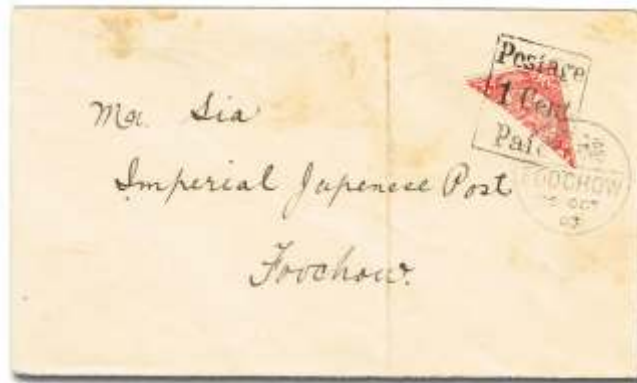 Postage
1 Cent
Paid
FOOCHOW
OCT
03
Mr. Sia
Imperial Japenese Post
Foochow.